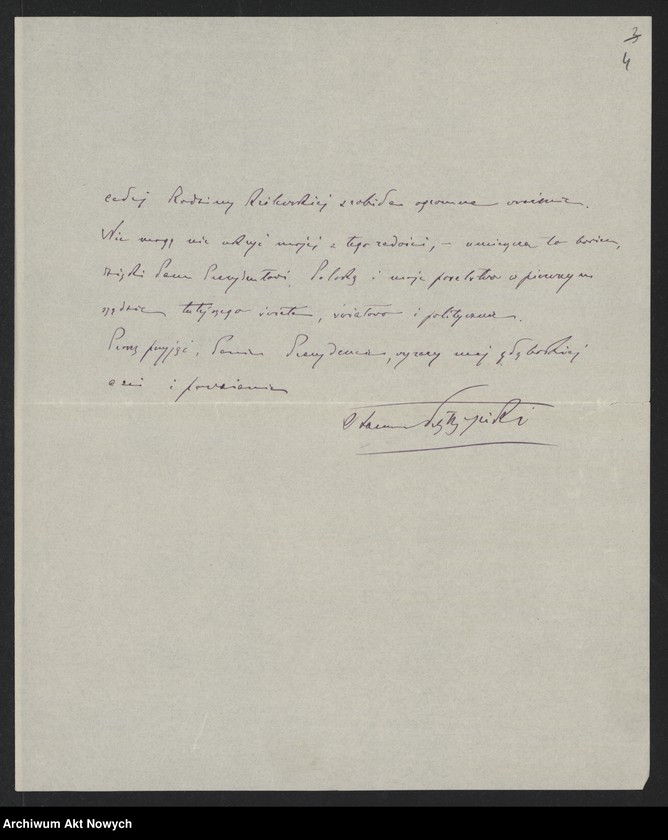 3
4
całej Rodziny Królewskiej zrobiła ogromne wrażenie.
Nie mogę nie ukryć mojej z tego radości, – umieszcza to bowiem,
dzięki Panu Prezydentowi, Polskę i moje poselstwo w pierwszym
rzędzie tutejszego świata, światowo i politycznie.
Proszę przyjąć, Panie Prezydencie, wyrazy mej głębokiej
czci i poważania
Archiwum Akt Nowych